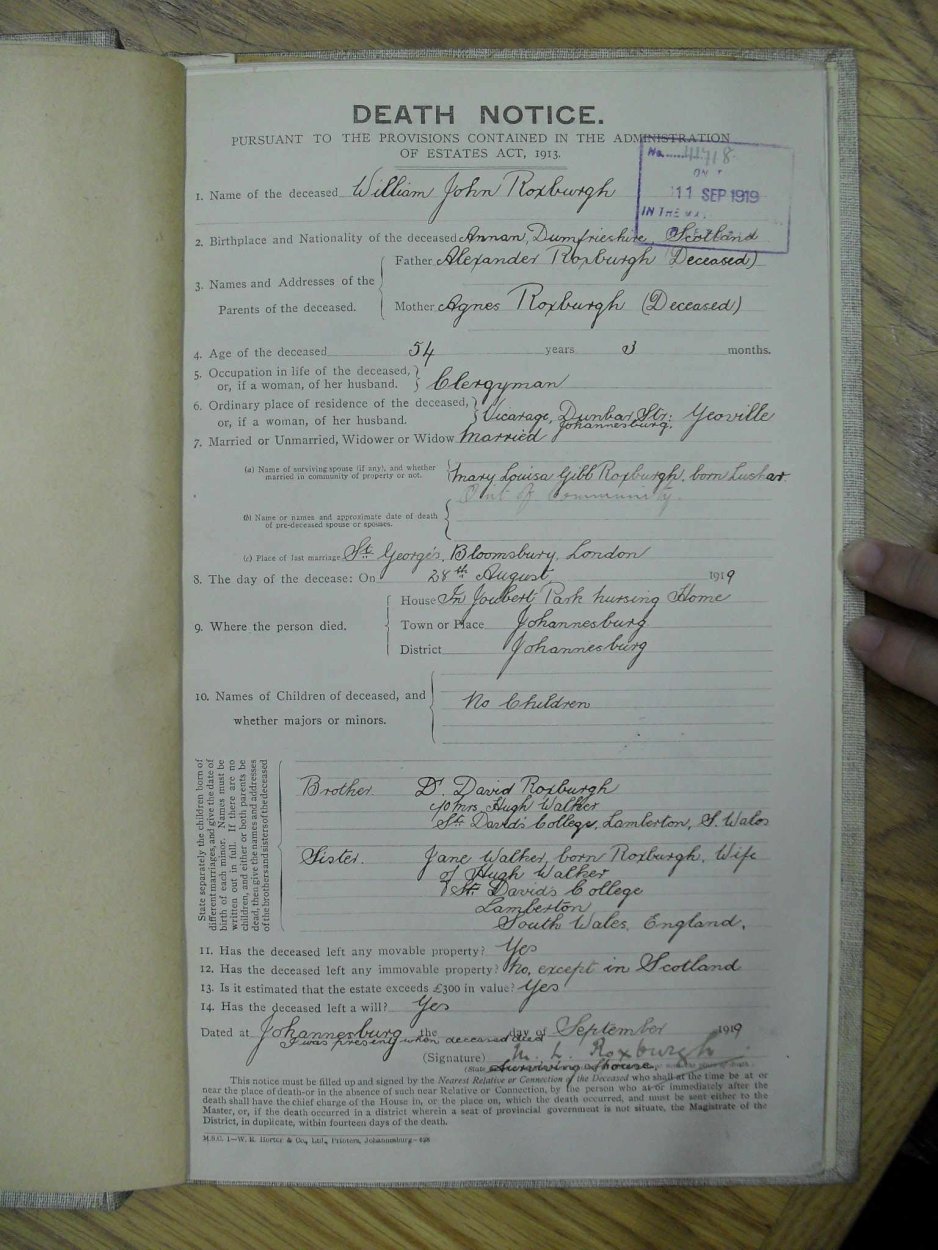 DEATH NOTICE.
PURSUANT TO THE PROVISIONS CONTAINED IN THE ADMINISTRATION
OF ESTATES ACT, 1913.
No. 41718
11 SEP 1919
IN THE
1. Name of the deceased William John Roxburgh
2. Birthplace and Nationality of the deceased Annan, Dumfrieshire, Scotland
3. Names and Addresses of the Parents of the deceased.
Father Alexander Roxburgh (Deceased)
Mother Agnes Roxburgh (Deceased)
4. Age of the deceased 54 years 3 months.
5. Occupation in life of the deceased,
or, if a woman, of her husband. Clergyman
6. Ordinary place of residence of the deceased,
or, if a woman, of her husband. Vicarage, Dunbar Str: Yeoville
Johannesburg.
7. Married or Unmarried, Widower or Widow Married
(a) Name of surviving spouse (if any), and whether
married in community of property or not. Mary Louisa Gibb Roxburgh, born
Out of Community.
(b) Name or names and approximate date of death
of pre-deceased spouse or spouses.
(c) Place of last marriage St. George's, Bloomsbury, London
8. The day of the decease: On 28th August, 1919
9. Where the person died.
House In Joubert Park nursing Home
Town or Place Johannesburg
District Johannesburg
10. Names of Children of deceased, and
whether majors or minors.
No Children
State separately the children born of
different marriages, and give the date of
birth of each minor. Names must be
written out in full. If there are no
children, and either or both parents be
dead, then give the names and addresses
of the brothers and sisters of the deceased
Brother. Dr. David Roxburgh
c/o Mrs. Hugh Walker
St. David's College, Lamberton, S. Wales
Sister. Jane Walker, born Roxburgh, Wife
of Hugh Walker
St. Davids College
Lamberton
South Wales, England.
11. Has the deceased left any movable property? Yes
12. Has the deceased left any immovable property? No, except in Scotland
13. Is it estimated that the estate exceeds £300 in value? Yes
14. Has the deceased left a will? Yes
Dated at Johannesburg the day of September 1919
I was present when deceased died
(Signature) M. L. Roxburgh
Surviving Spouse.
This notice must be filled up and signed by the Nearest Relative or Connection of the Deceased who shall at the time be at or
near the place of death—or in the absence of such near Relative or Connection, by the person who at or immediately after the
death shall have the chief charge of the House in, or the place on, which the death occurred, and must be sent either to the
Master, or, if the death occurred in a district wherein a seat of provincial government is not situate, the Magistrate of the
District, in duplicate, within fourteen days of the death.
M.S.C. 1—W. E. Horter & Co., Ltd., Printers, Johannesburg—